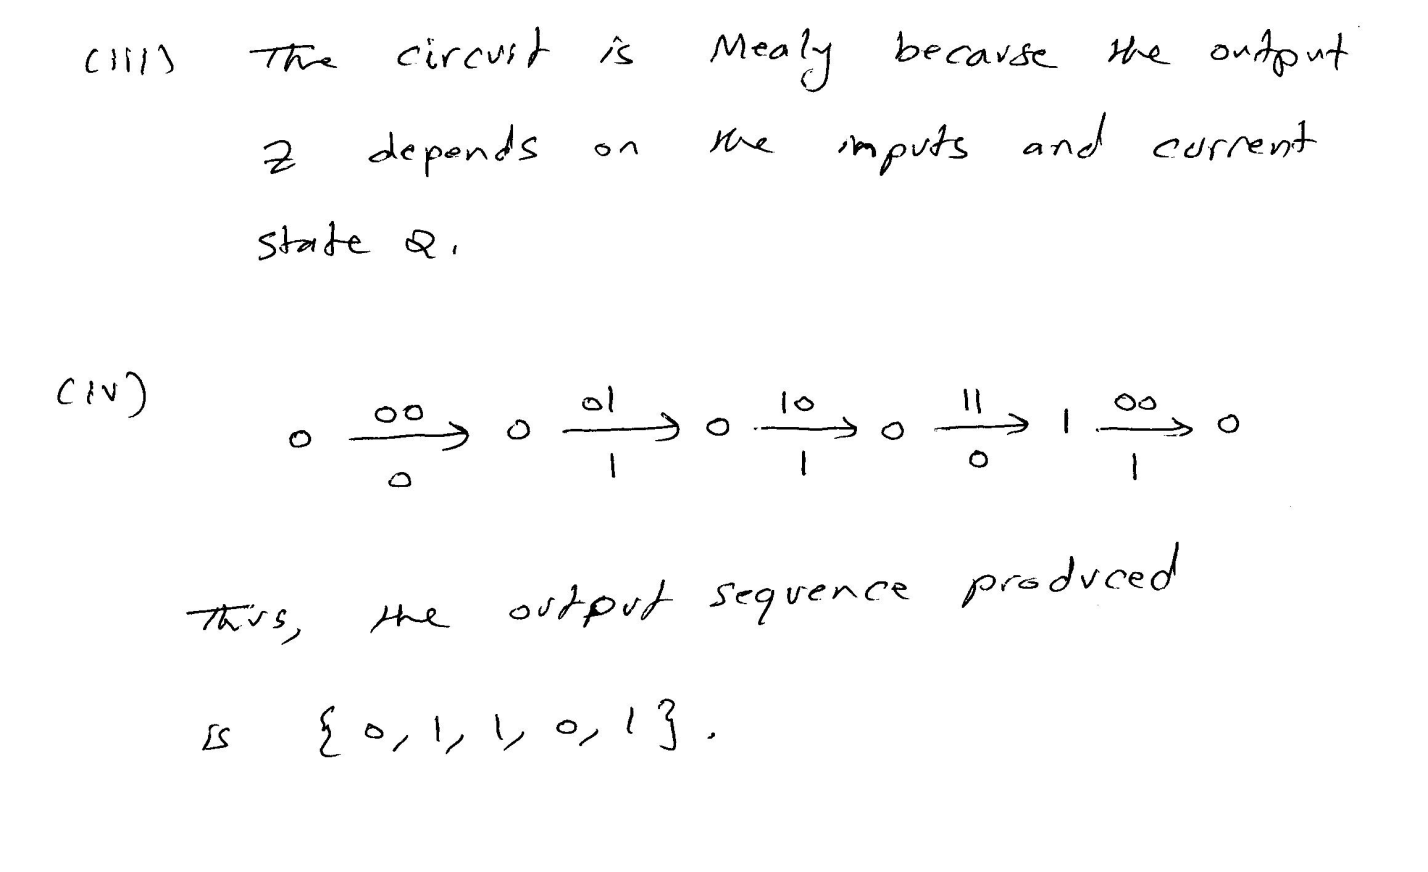 (iii) The circuit is Mealy because the output
Z depends on the inputs and current
state Q.
(iv)
0 —00/0→ 0 —01/1→ 0 —10/1→ 0 —11/0→ 1 —00/1→ 0
Thus, the output sequence produced
is {0,1,1,0,1}.